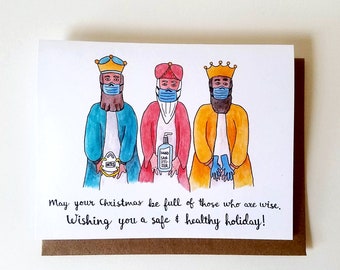 HAND
SANI
TIZER
May your Christmas be full of those who are wise.
Wishing you a safe & healthy holiday!